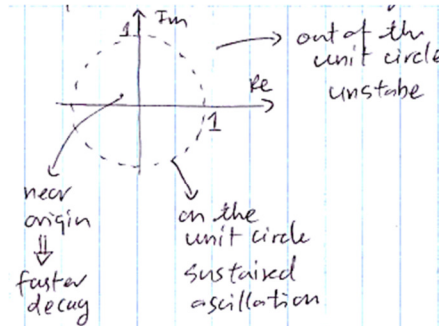 1 Im
out of th
unit circle
unstabe
Re
1
near
origin
⇓
faster
decay
on the
unit circle
sustaired
oscillation